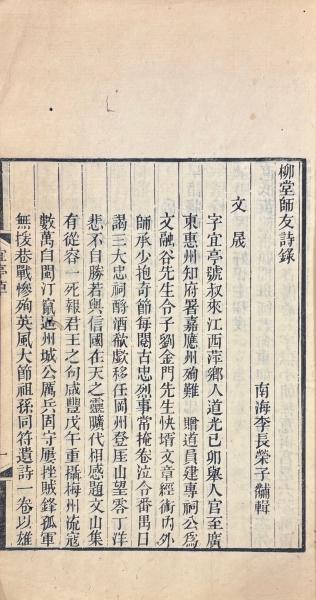 柳堂師友詩錄
南海李長榮子黼輯
文晟
字宜亭號叔來江西萍鄉人道光己卯舉人官至廣
東惠州知府署嘉應州殉難 贈道員建專祠公為
文融谷先生令子劉金門先生快壻文章經術內外
師承少抱奇節每閱古忠烈事常掩卷泣令番禺日
謁三大忠祠酹酒欷歔移任岡州登厓山望零丁洋
悲不自勝若與信國在天之靈曠代相感題文山集
有從容一死報君王之句咸豐戊午重攝梅州流寇
數萬自閩汀竄逼州城公厲兵固守屢挫賊鋒孤軍
無援巷戰慘殉英風大節祖孫同符遺詩一卷以雄
宜亭草
一